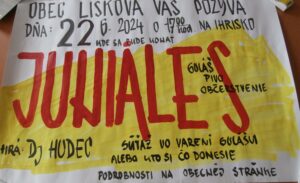 OBEC LISKOVÁ VÁS POZÝVA
DŇA: 22 6. 2024 O 17 00 HOD NA IHRISKO
KDE SA BUDE KONAŤ
JUNIÁLES
GULÁŠ
PIVO
OBČERSTVENIE
HRÁ: DJ HUDEC
SÚŤAŽ VO VARENÍ GULÁŠU
ALEBO KTO SI ČO DONESIE
PODROBNOSTI NA OBECNEJ STRÁNKE